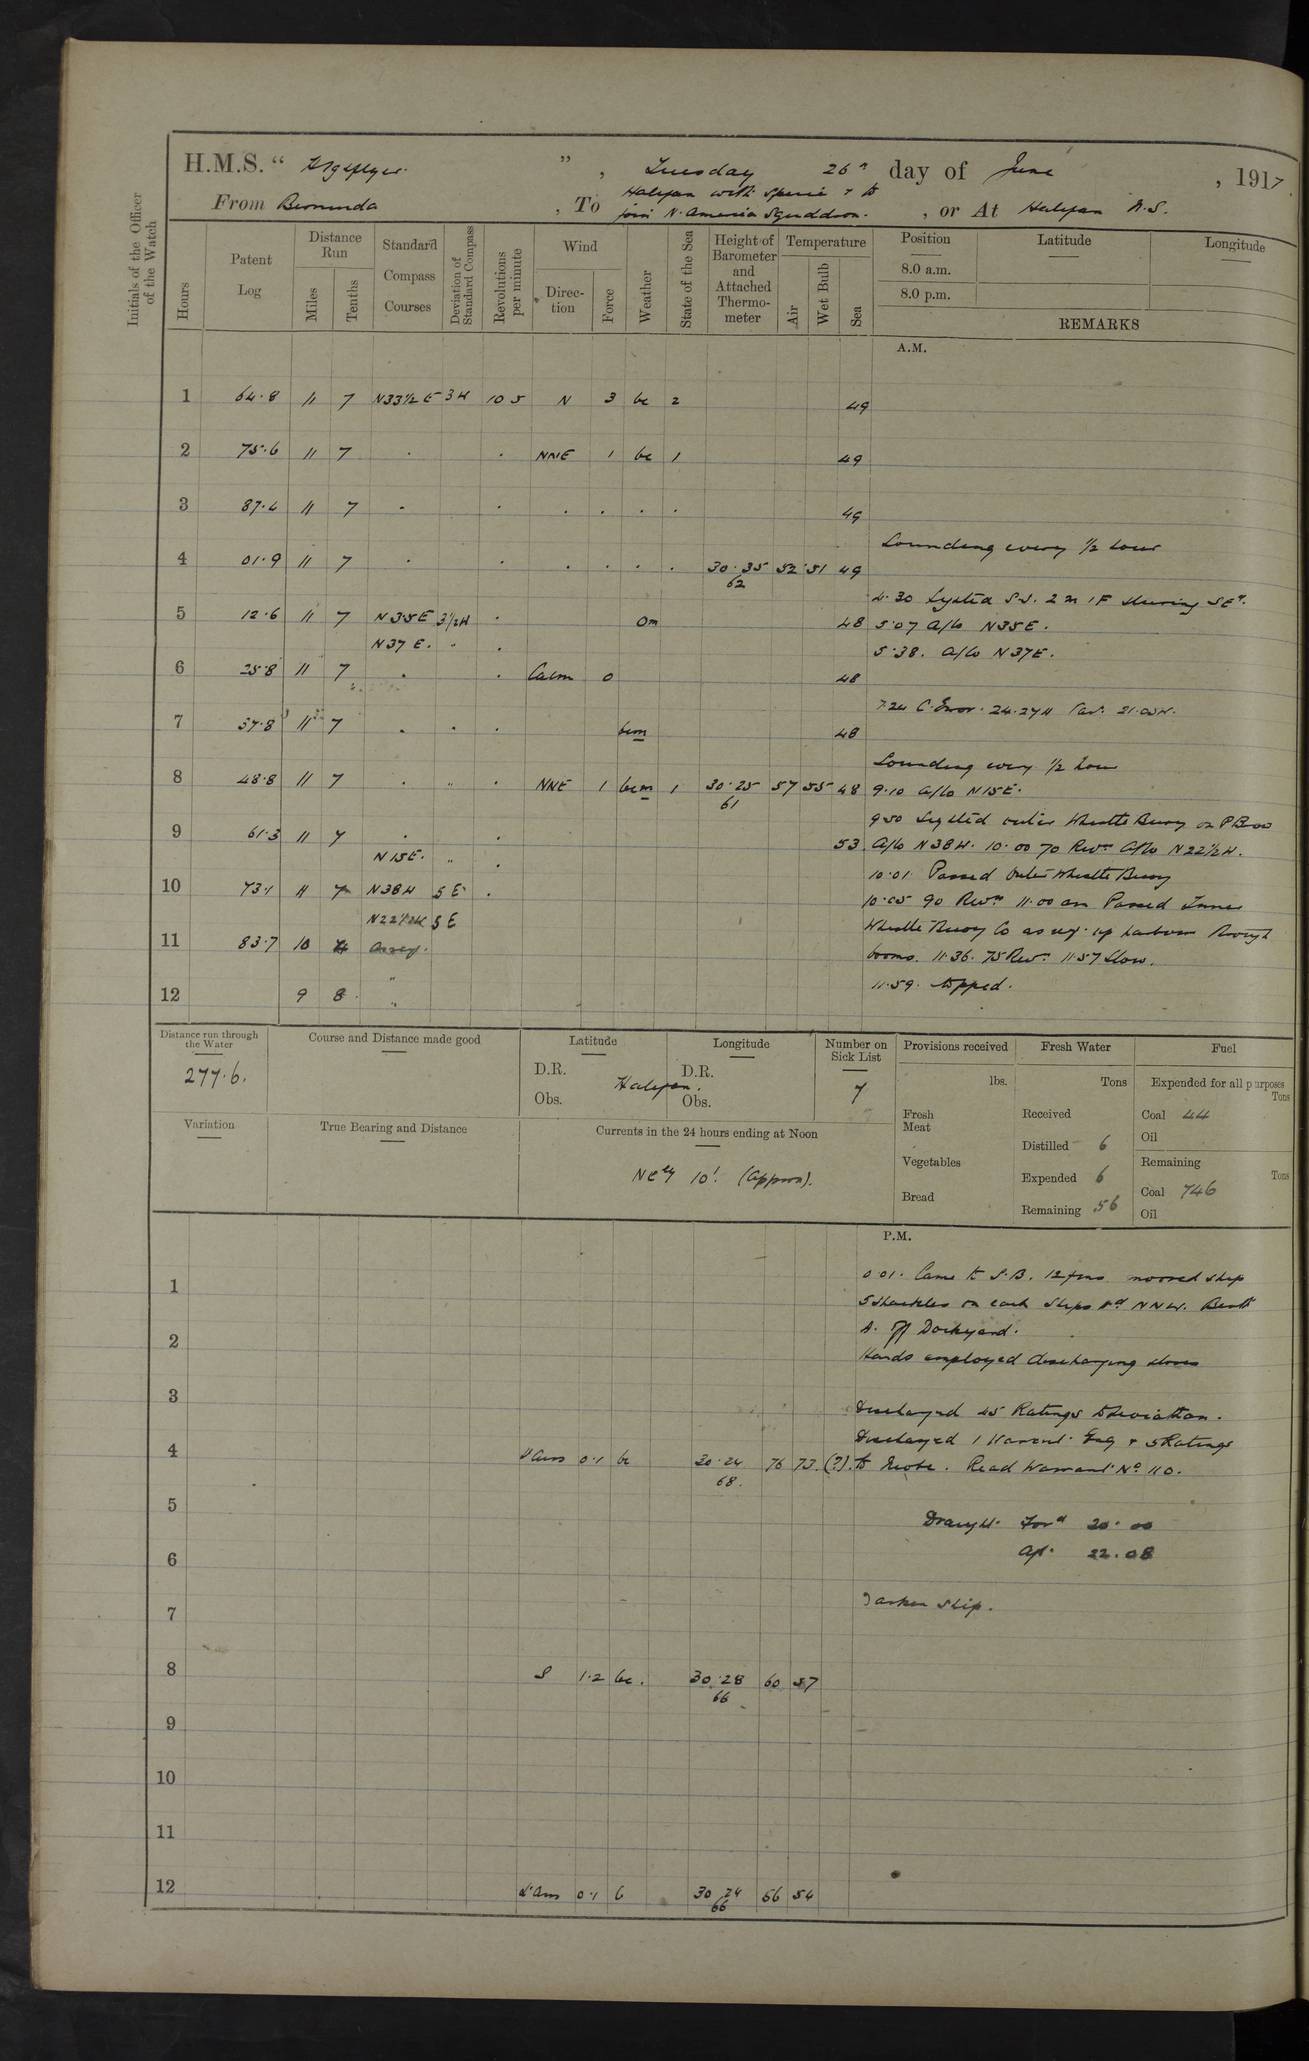 H.M.S. “ Highflyer ”, Tuesday 26th day of June, 1917
From Bermuda, To Halifax with specie & to join N. America Squadron., or At Halifax N.S.
Initials of the Officer of the Watch
Hours
Patent Log
Distance Run
Miles
Tenths
Standard Compass Courses
Deviation of Standard Compass
Revolutions per minute
Wind
Direction
Force
Weather
State of the Sea
Height of Barometer and Attached Thermometer
Temperature
Air
Wet Bulb
Sea
Position Latitude Longitude
8.0 a.m.
8.0 p.m.
REMARKS
A.M.
1 64.8 11 7 N33½E 3W 105 N 3 bc 2 49
2 75.6 11 7 . . NNE 1 bc 1 49
3 87.4 11 7 . . . . . . 49
Sounding every ½ hour
4 01.9 11 7 . . . . . . 30.35 52 51 49
62
4.30 Sighted S.S. 2 m 1 F steering SEly.
5 12.6 11 7 N35E 3½W . om 48 5.07 A/Co N35E.
N37E. " . 5.38. A/Co N37E.
6 25.8 11 7 . . Calm 0 48
7.24 C. Error. 24.27W Var. 21.00W.
7 37.8 11 7 . . . bcm 48
Sounding every ½ hour
8 48.8 11 7 . " . NNE 1 bcm 1 30.25 57 55 48 9.10 A/Co N15E.
61
9.50 Sighted outer Whistle Buoy on P Bow
9 61.3 11 7 . . 53 A/Co N38W. 10.00 70 Revns A/Co N22½W.
N15E. " . 10.01. Passed Outer Whistle Buoy
10 73.1 11 7 N38W 5E . 10.05 90 Revns 11.00 am Passed Inner
N22½W 5E Whistle Buoy Co as req. up harbour through
11 83.7 10 4 As req. booms. 11.36. 75 Revns 11.57 Slow.
" 11.59. stopped.
12 9 8 "
Distance run through the Water
277.6.
Course and Distance made good
Latitude
Longitude
D.R. D.R.
Halifax.
Obs. Obs.
Number on Sick List
7
Provisions received
lbs.
Fresh Meat
Vegetables
Bread
Fresh Water
Tons
Received
Distilled 6
Expended 6
Remaining 56
Fuel
Expended for all purposes
Tons
Coal 44
Oil
Remaining
Tons
Coal 746
Oil
Variation
True Bearing and Distance
Currents in the 24 hours ending at Noon
NEly 10'. (Approx).
P.M.
0.01. Came to S.B. 12 fms moored ship
1
5 shackles on each Ships Hd NNW. Berth
A. off Dockyard.
2
Hands employed discharging stores
3
Discharged 45 Ratings to Leviathan.
Discharged 1 Warrant Eng & 5 Ratings
4 S'Airs 0.1 bc 30.24 76 73 (?) to Niobe. Read Warrant No 110.
68.
5
Draught. Ford 20.00
Aft. 22.08
6
7 Darken ship.
8 S 1.2 bc. 30.28 60 57
66
9
10
11
12 L'Airs 0.1 b 30.24 56 54
66